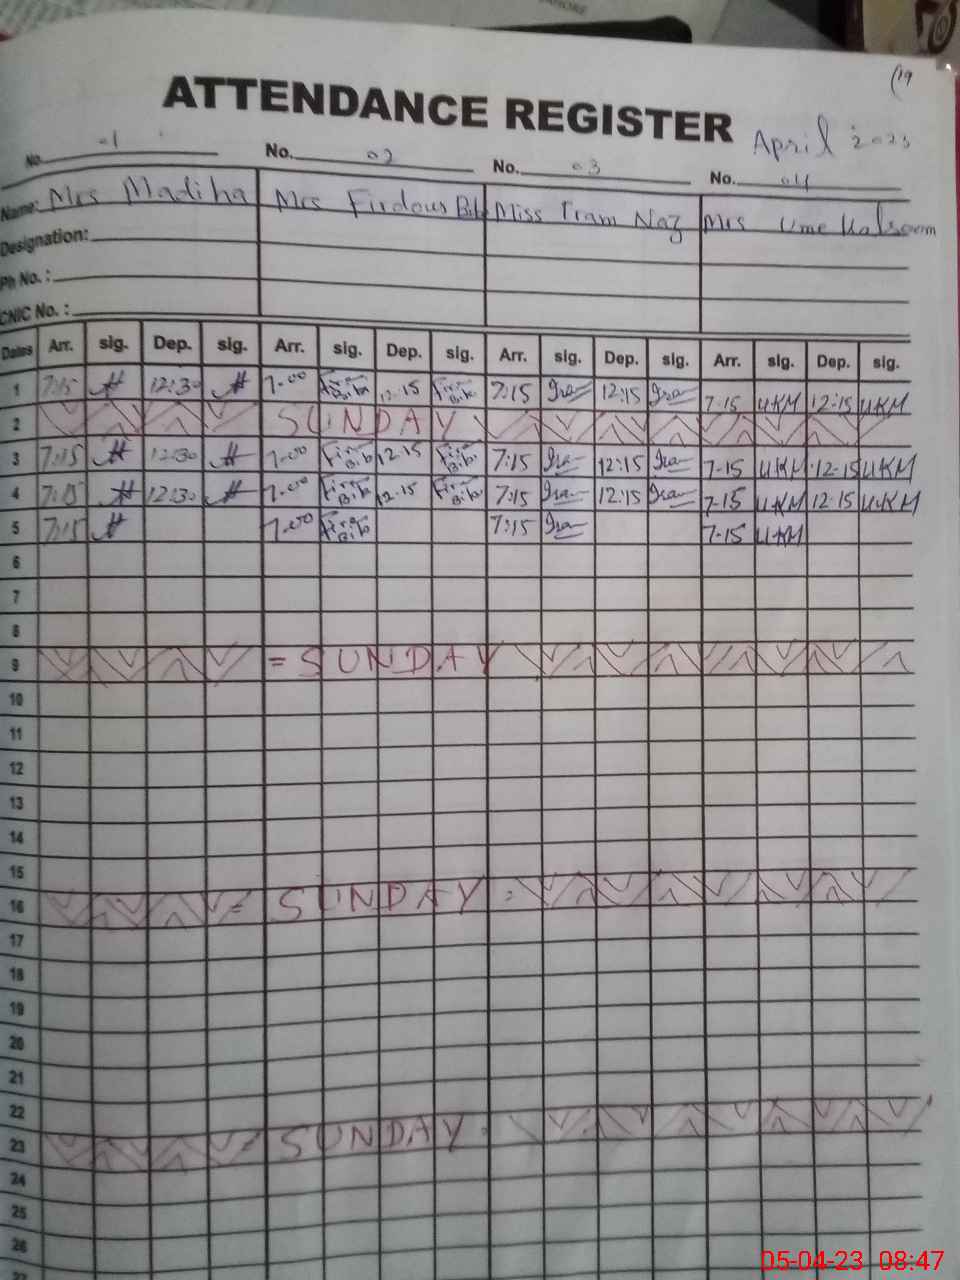 (19
ATTENDANCE REGISTER April 2023
No. 01 No. 02 No. 03 No. 04
Name: Mrs Madiha Mrs Firdous Bibi Miss Iram Naz Mrs Ume Kalsoom
Designation:
Ph No. :
CNIC No. :
Dates Arr. sig. Dep. sig. Arr. sig. Dep. sig. Arr. sig. Dep. sig. Arr. sig. Dep. sig.
1 7:15 12:30 7-00 12-15 7:15 Ira 12:15 Ira 7-15 UKM 12-15 UKM
2 SUNDAY
3 7:15 12:30 7-00 12-15 7:15 Ira 12:15 Ira 7-15 UKM 12-15 UKM
4 7:15 12:30 7-00 12-15 7:15 Ira 12:15 Ira 7-15 UKM 12-15 UKM
5 7:15 7-00 7:15 Ira 7-15 UKM
6
7
8
9 = SUNDAY
10
11
12
13
14
15
16 = SUNDAY =
17
18
19
20
21
22
23 = SUNDAY
24
25
26
27
05-04-23 08:47